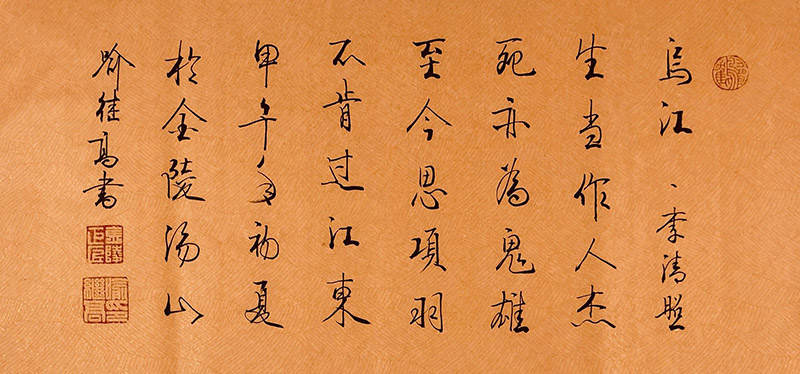 烏江、李清照
生当作人杰
死亦為鬼雄
至今思項羽
不肯过江東
甲午年初夏
於金陵湯山
喻继高書